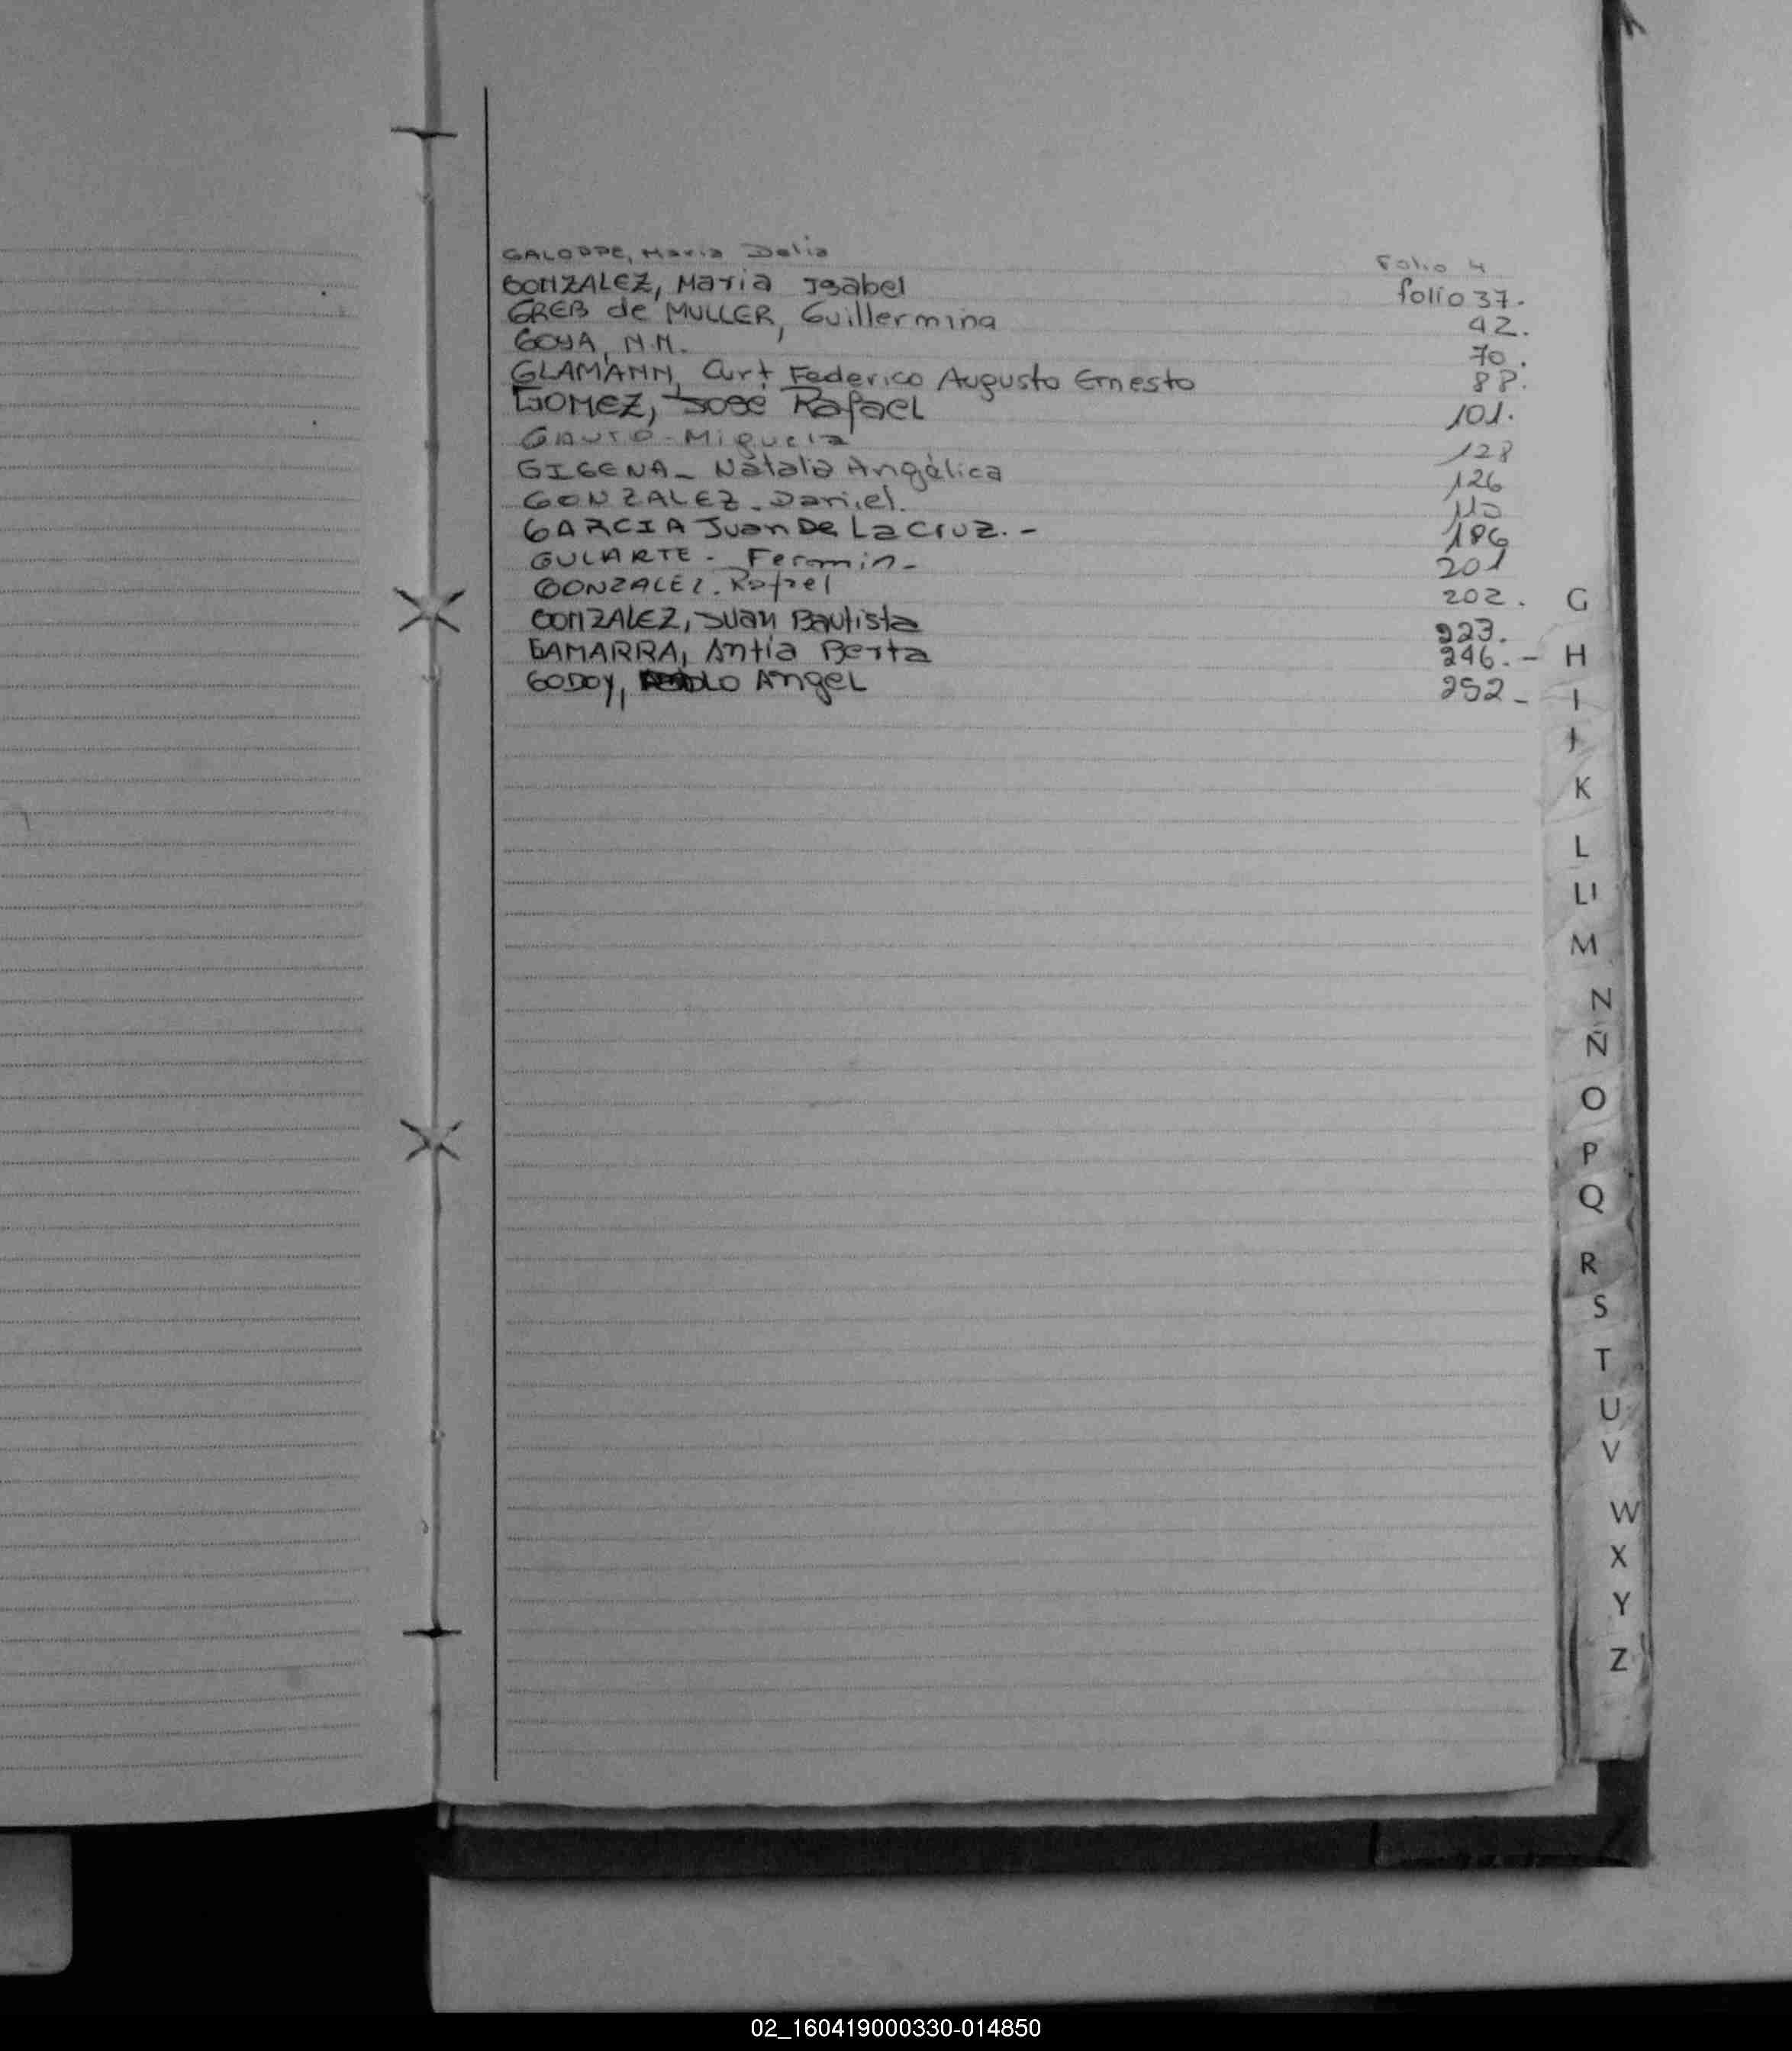 GALOPPE, Maria Delia Folio 4
GONZALEZ, Maria Isabel folio 37.
GREB de MULLER, Guillermina 42.
GOYA, N.N. 70.
GLAMANN, Curt Federico Augusto Ernesto 88.
GOMEZ, Jose Rafael 101.
GAUTO - Miguela 128
GIGENA - Natalia Angélica 126
GONZALEZ. Daniel.
GARCIA Juan De La Cruz. - 186
GULARTE - Fermin - 201
GONZALEZ. Rafael 202.
GONZALEZ, Juan Bautista 223.
GAMARRA, Antia Berta 246. -
GODOY, Angel 252 -
G
H
I
J
K
L
Ll
M
N
Ñ
O
P
Q
R
S
T
U
V
W
X
Y
Z
02_160419000330-014850